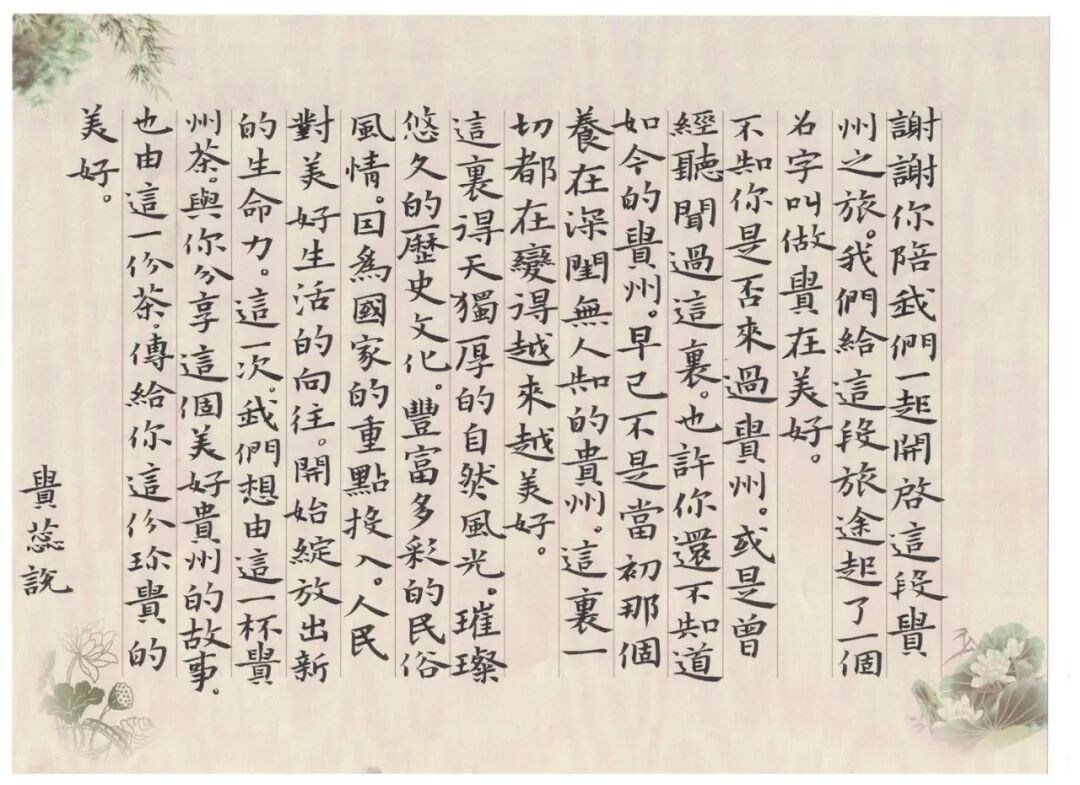 謝謝你陪我們一起開啓這段貴
州之旅。我們給這段旅途起了一個
名字叫做貴在美好。
不知你是否來過貴州。或是曾
經聽聞過這裏。也許你還不知道
如今的貴州。早已不是當初那個
養在深閨無人知的貴州。這裏一
切都在變得越來越美好。
這裏得天獨厚的自然風光。璀璨
悠久的歷史文化。豐富多彩的民俗
風情。因爲國家的重點投入。人民
對美好生活的向往。開始綻放出新
的生命力。這一次。我們想由這一杯貴
州茶。與你分享這個美好貴州的故事。
也由這一份茶。傳給你這份珍貴的
美好。
貴蕊說